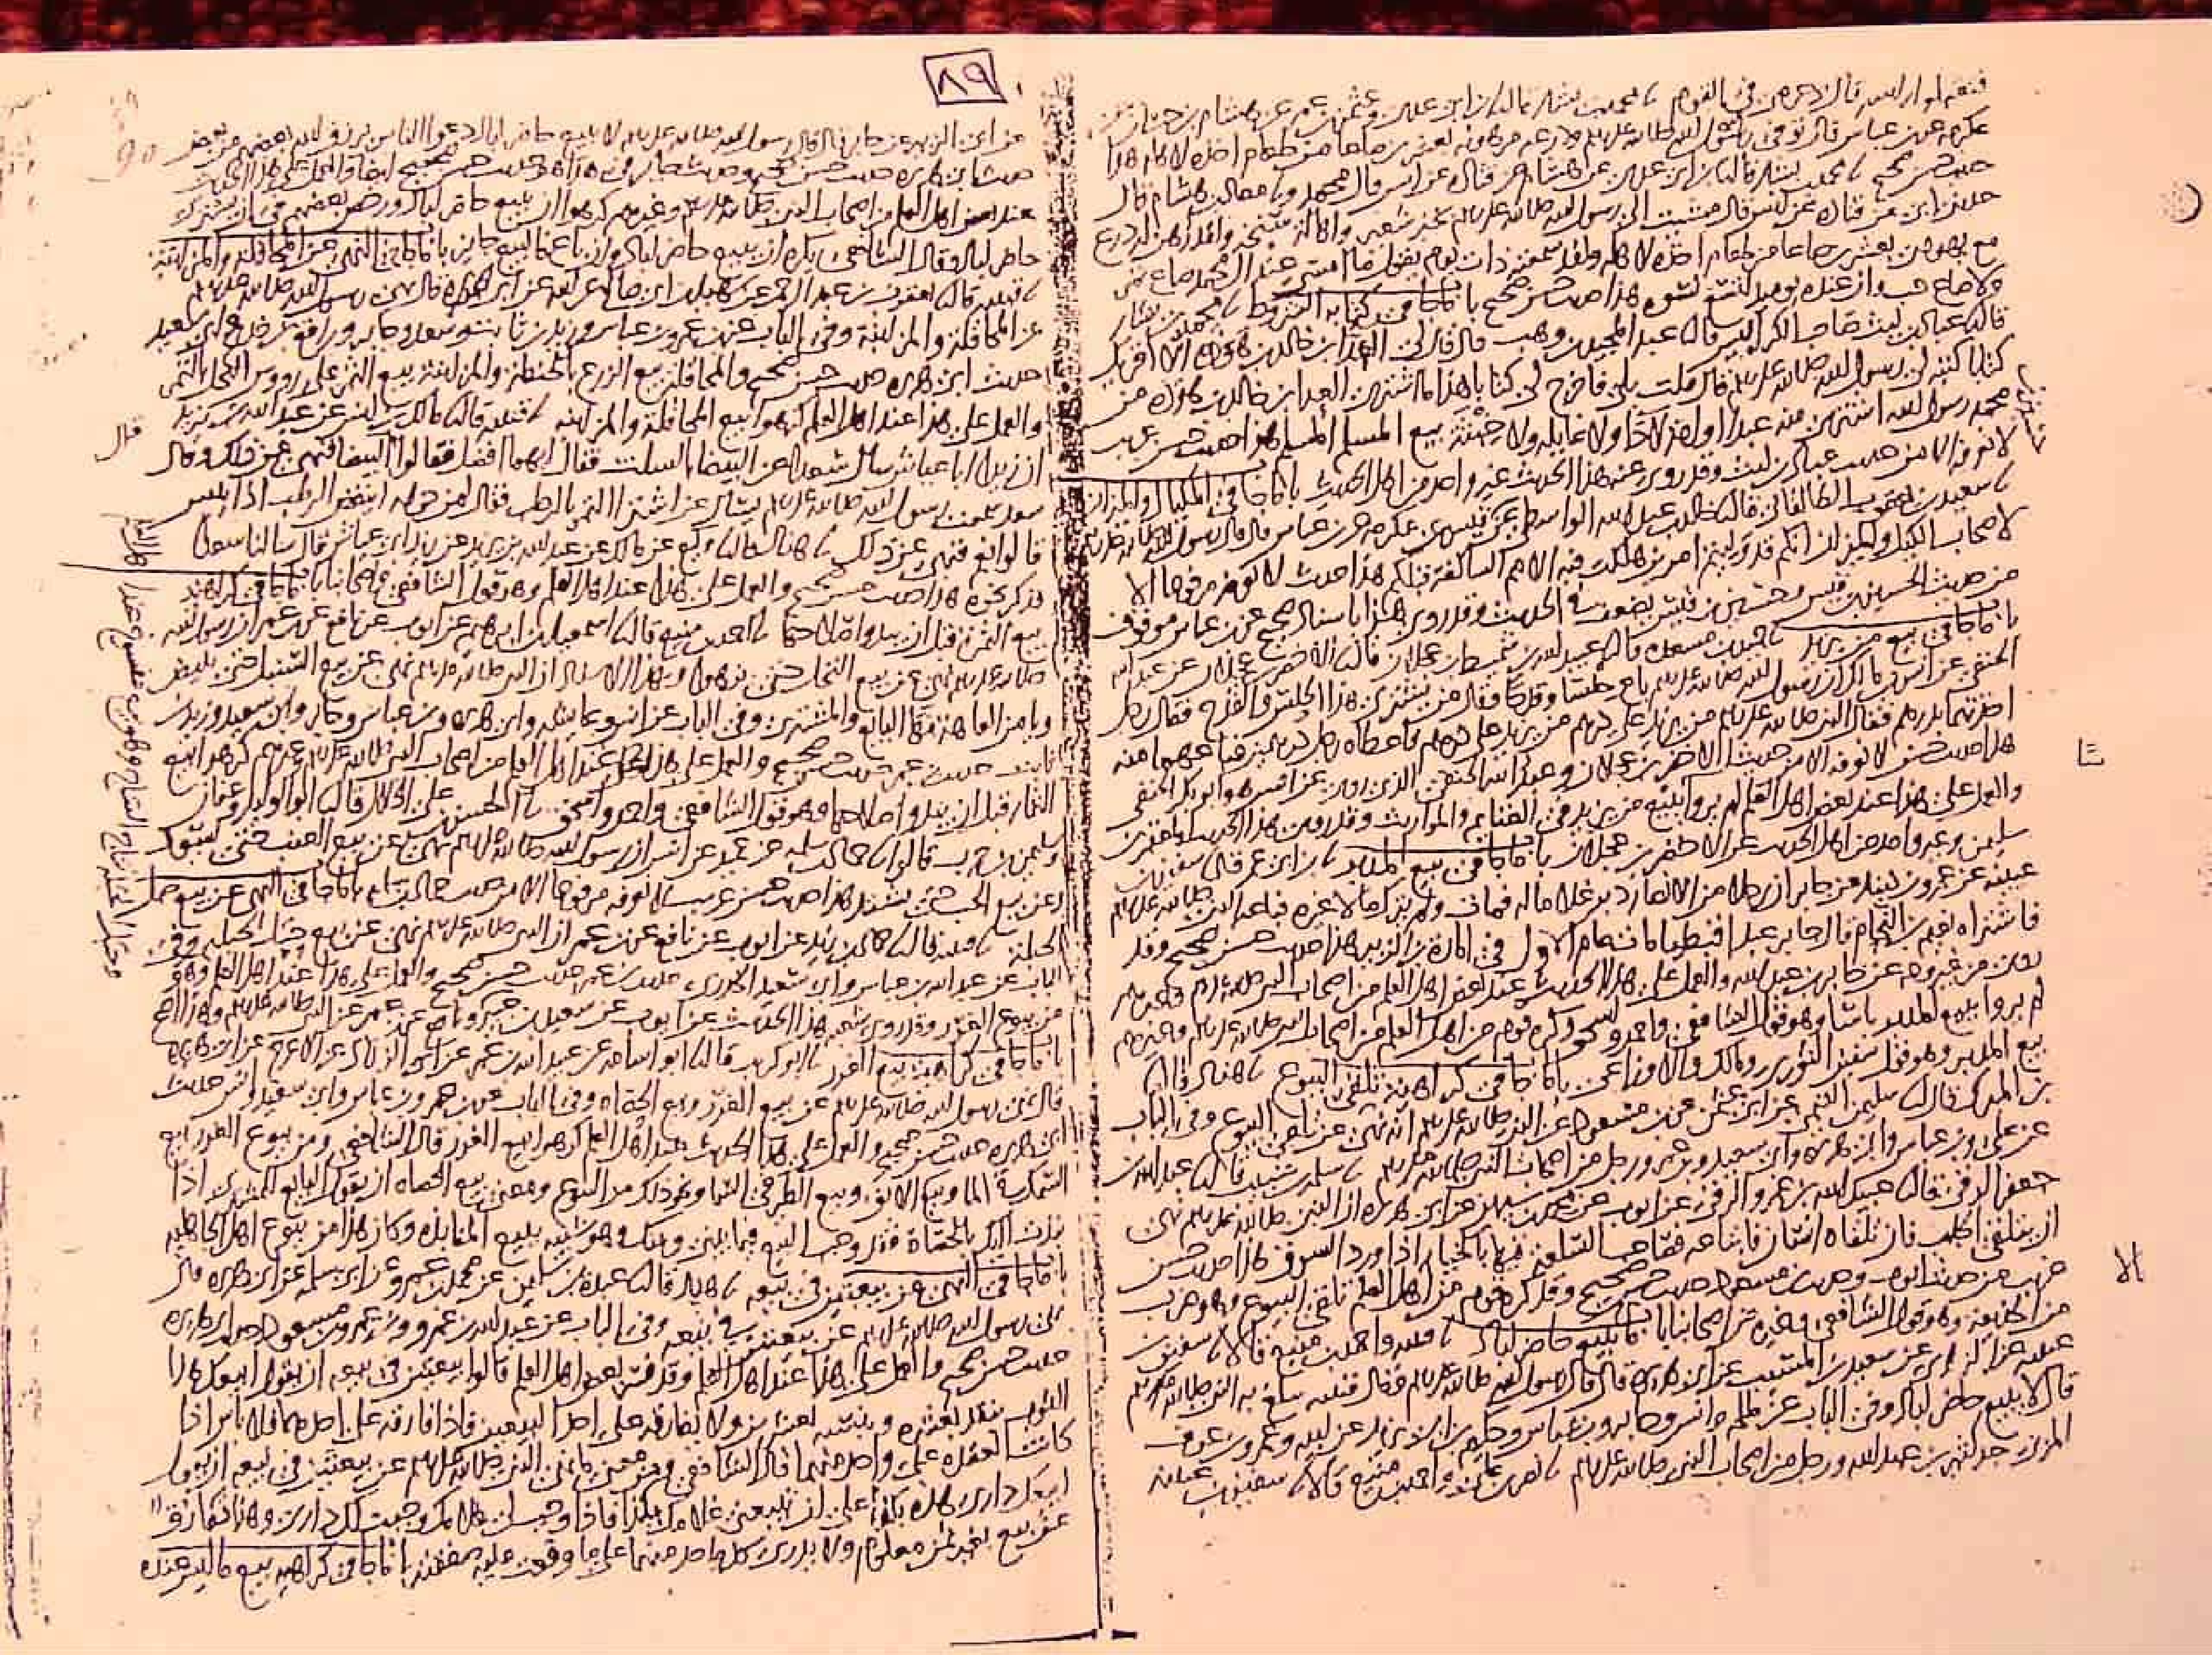 عكرمه عن بن عباس قال توفى رسول الله صلى الله عليه وسلم ودرعه مرهونه بعشرين صاعا من طعام اخذه لاهله هذا
حديث حسن صحيح محمد بن بشار قال ابن ابى عدى عن هشام عن قتاده عن انس قال محمد ومعاذ بن هشام قال
حدثنا ابى عن قتاده عن انس قال مشيت الى رسول الله صلى الله عليه وسلم بخبز شعير واهاله سنخه ولقد رهن له درع
مع يهودى بعشرين صاعا من طعام اخذه لاهله ولقد سمعته ذات يوم يقول ما امسى عند ال محمد صاع تمر
ولا صاع حب وان عنده يوميذ لتسع نسوه هذا حديث حسن صحيح باب ما جا فى كتابه الشروط محمد بن بشار
قال عباد بن ليث صاحب الكرابيس قال عبد المجيد بن وهب قال قال لى العدا بن خالد بن هوذه الا اقريك
كتابا كتبه لى رسول الله صلى الله عليه وسلم قال قلت بلى فاخرج لى كتابا هذا ما اشترى العدا بن خالد بن هوذه من
محمد رسول الله اشترى منه عبدا او امه لا دا ولا غايله ولا خبثه بيع المسلم المسلم هذا حديث حسن غريب
لا نعرفه الا من حديث عباد بن ليث وقد روى عنه هذا الحديث غير واحد من اهل الحديث باب ما جا فى المكيال والميزان
سعيد بن يعقوب الطالقانى قال خالد بن عبد الله الواسطى عن حسين بن قيس عن عكرمه عن بن عباس قال قال رسول الله صلى الله عليه وسلم
لاصحاب الكيل والميزان انكم قد وليتم امرين هلكت فيه الامم السالفه قبلكم هذا حديث لا نعرفه مرفوعا الا
من حديث الحسين بن قيس وحسين بن قيس يضعف فى الحديث وقد روى هذا باسناد صحيح عن بن عباس موقوف
باب ما جا فى بيع من يزيد حميد بن مسعده قال عبيد الله بن شميط بن عجلان قال الاخضر بن عجلان عن عبد الله
الحنفى عن انس بن مالك ان رسول الله صلى الله عليه وسلم باع حلسا وقدحا وقال من يشترى هذا الحلس والقدح فقال رجل
اخذتهما بدرهم فقال النبى صلى الله عليه وسلم من يزيد على درهم من يزيد على درهم فاعطاه رجل درهمين فباعهما منه
هذا حديث حسن لا نعرفه الا من حديث الاخضر بن عجلان وعبد الله الحنفى الذى روى عن انس هو ابو بكر الحنفى
والعمل على هذا عند بعض اهل العلم لم يروا بيع من يزيد فى الغنايم والمواريث وقد روى هذا الحديث المعتمر بن
سليمن وغير واحد من اهل الحديث عن الاخضر بن عجلان باب ما جا فى بيع المدبر بن ابى عمر قال سفين بن
عيينه عن عمرو بن دينار عن جابر ان رجلا من الانصار دبر غلاما له فمات ولم يترك مالا غيره فباعه النبى صلى الله عليه وسلم
فاشتراه نعيم بن النحام قال جابر عبدا قبطيا مات عام الاول فى اماره بن الزبير هذا حديث حسن صحيح وقد
روى من غير وجه عن جابر بن عبد الله والعمل على هذا الحديث عند بعض اهل العلم من اصحاب النبى صلى الله عليه وسلم وغيرهم
لم يروا ببيع المدبر باسا وهو قول الشافعى واحمد واسحق وكره قوم من اهل العلم من اصحاب النبى صلى الله عليه وسلم وغيرهم
بيع المدبر وهو قول سفين الثورى ومالك والاوزاعى باب ما جا فى كراهيه تلقى البيوع هناد قال
بن المبرك قال سليمن التيمى عن ابى عثمن عن بن مسعود عن النبى صلى الله عليه وسلم انه نهى عن تلقى البيوع وفى الباب
عن على وبن عباس وابى هريره وابى سعيد وبن عمر ورجل من اصحاب النبى صلى الله عليه وسلم سلمه بن شبيب قال عبد الله بن
جعفر الرقى قال عبيد الله بن عمرو الرقى عن ايوب عن محمد بن سيرين عن ابى هريره ان النبى صلى الله عليه وسلم نهى
ان يتلقى الجلب فان تلقاه انسان فابتاعه فصاحب السلعه فيها بالخيار اذا ورد السوق هذا حديث حسن
غريب من حديث ايوب وحديث مسعود حديث حسن صحيح وقد كره قوم من اهل العلم تلقى البيوع وهو ضرب
من الخديعه وهو قول الشافعى وغيره من اصحابنا باب ما جا لا يبيع حاضر لباد قتيبه واحمد بن منيع قالا سفين بن
عيينه عن الزهرى عن سعيد بن المسيب عن ابى هريره قال قال رسول الله صلى الله عليه وسلم وقال قتيبه يبلغ به النبى صلى الله عليه وسلم
قال لا يبيع حاضر لباد وفى الباب عن طلحه وانس وجابر وبن عباس وحكيم بن ابى يزيد عن ابيه وعمرو بن عوف
المزنى جد كثير بن عبد الله ورجل من اصحاب النبى صلى الله عليه وسلم نصر بن على واحمد بن منيع قالا سفين بن عيينه
٨٩
عن ابى الزبير عن جابر قال قال رسول الله صلى الله عليه وسلم لا يبيع حاضر لباد دعوا الناس يرزق الله بعضهم من بعض
حديث ابى هريره حديث حسن صحيح وحديث جابر فى هذا هو حديث حسن صحيح ايضا والعمل على هذا الحديث
عند بعض اهل العلم من اصحاب النبى صلى الله عليه وسلم وغيرهم كرهوا ان يبيع حاضر لباد ورخص بعضهم فى ان يشترى
حاضر لباد وقال الشافعى يكره ان يبيع حاضر لباد وان باع فالبيع جايز باب ما جا فى النهى عن المحاقله والمزابنه
قتيبه قال يعقوب بن عبد الرحمن عن سهيل بن ابى صالح عن ابيه عن ابى هريره قال نهى رسول الله صلى الله عليه وسلم
عن المحاقله والمزابنه وفى الباب عن بن عمر وبن عباس وزيد بن ثابت وسعد وجابر ورافع بن خديج وابى سعيد
حديث ابى هريره حديث حسن صحيح والمحاقله بيع الزرع بالحنطه والمزابنه بيع الثمر على رووس النخل بالتمر
والعمل على هذا عند اهل العلم كرهوا بيع المحاقله والمزابنه قتيبه قال مالك بن انس عن عبد الله بن يزيد
ان زيدا ابا عياش سال سعدا عن البيضا بالسلت فقال ايهما افضل فقالوا البيضا فنهى عن ذلك وقال
قال
سعد سمعت رسول الله صلى الله عليه وسلم يسال عن اشترا التمر بالرطب فقال لمن حوله اينقص الرطب اذا يبس
قالوا نعم فنهى عن ذلك هناد قال وكيع عن مالك عن عبد الله بن يزيد عن زيد ابى عياش قال سالنا سعدا
فذكر نحوه هذا حديث حسن صحيح والعمل على هذا عند اهل العلم وهو قول الشافعى واصحابنا باب ما جا فى كراهيه
بيع الثمره قبل ان يبدو صلاحها احمد بن منيع قال اسمعيل بن ابرهيم عن ايوب عن نافع عن بن عمر ان رسول الله
صلى الله عليه وسلم نهى عن بيع النخل حتى يزهو وبهذا الاسناد ان النبى صلى الله عليه وسلم نهى عن بيع السنبل حتى يبيض
ويامن العاهه نهى البايع والمشترى وفى الباب عن انس وعايشه وابى هريره وبن عباس وجابر وابى سعيد وزيد بن
ثابت حديث بن عمر حديث حسن صحيح والعمل على هذا عند اهل العلم من اصحاب النبى صلى الله عليه وسلم وغيرهم كرهوا بيع
الثمار قبل ان يبدو صلاحها وهو قول الشافعى واحمد واسحق الحسن بن على الخلال قال ابو الوليد وعفان
وسليمن بن حرب قالوا حماد بن سلمه عن حميد عن انس ان رسول الله صلى الله عليه وسلم نهى عن بيع العنب حتى يسود
وعن بيع الحب حتى يشتد هذا حديث حسن غريب لا نعرفه مرفوعا الا من حديث حماد بن سلمه باب ما جا فى النهى عن بيع حبل
الحبله قتيبه قال حماد بن زيد عن ايوب عن نافع عن بن عمر ان النبى صلى الله عليه وسلم نهى عن بيع حبل الحبله وفى
الباب عن عبد الله بن عباس وابى سعيد الخدرى حديث بن عمر حديث حسن صحيح والعمل على هذا عند اهل العلم وهو
من بيوع الغرر وقد روى شعبه هذا الحديث عن ايوب عن سعيد بن جبير ونافع عن بن عمر عن النبى صلى الله عليه وسلم وهذا اصح
باب ما جا فى كراهيه بيع الغرر ابو كريب قال ابو اسامه عن عبيد الله بن عمر عن ابى الزناد عن الاعرج عن ابى هريره
قال نهى رسول الله صلى الله عليه وسلم عن بيع الغرر وبيع الحصاه وفى الباب عن بن عمر وبن عباس وابى سعيد وانس حديث
ابى هريره حديث حسن صحيح والعمل على هذا الحديث عند اهل العلم كرهوا بيع الغرر قال الشافعى ومن بيوع الغرر بيع
السمك فى الما وبيع الابق وبيع الطير فى السما ونحو ذلك من البيوع ومعنى بيع الحصاه ان يقول البايع للمشترى اذا
نبذت اليك بالحصاه فقد وجب البيع فيما بينى وبينك وهو شبيه ببيع المنابذه وكان هذا من بيوع اهل الجاهليه
باب ما جا فى النهى عن بيعتين فى بيعه هناد قال عبده بن سليمن عن محمد بن عمرو عن ابى سلمه عن ابى هريره قال
نهى رسول الله صلى الله عليه وسلم عن بيعتين فى بيعه وفى الباب عن عبد الله بن عمرو وبن عمر وبن مسعود حديث ابى هريره
حديث حسن صحيح والعمل على هذا عند اهل العلم وقد فسر بعض اهل العلم قالوا بيعتين فى بيعه ان يقول ابيعك هذا
الثوب بنقد بعشره وبنسيه بعشرين ولا يفارقه على احد البيعين فاذا فارقه على احدهما فلا باس اذا
كانت العقده على واحد منهما قال الشافعى ومن معنى ما نهى النبى صلى الله عليه وسلم عن بيعتين فى بيعه ان يقول
ابيعك دارى هذه بكذا على ان تبيعنى غلامك بكذا فاذا وجب لى غلامك وجبت لك دارى وهذا تفارق
عن بيع بغير ثمن معلوم ولا يدرى كل واحد منهما على ما وقعت عليه صفقته باب ما جا فى كراهيه بيع ما ليس عنده